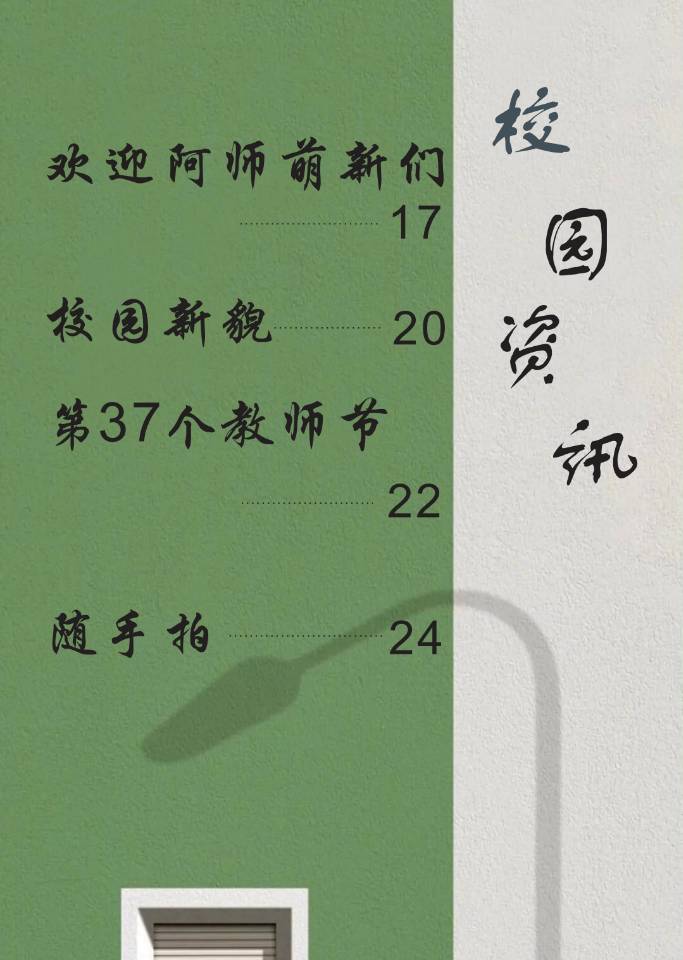 校园资讯
欢迎阿师萌新们
17
校园新貌 20
第37个教师节
22
随手拍 24